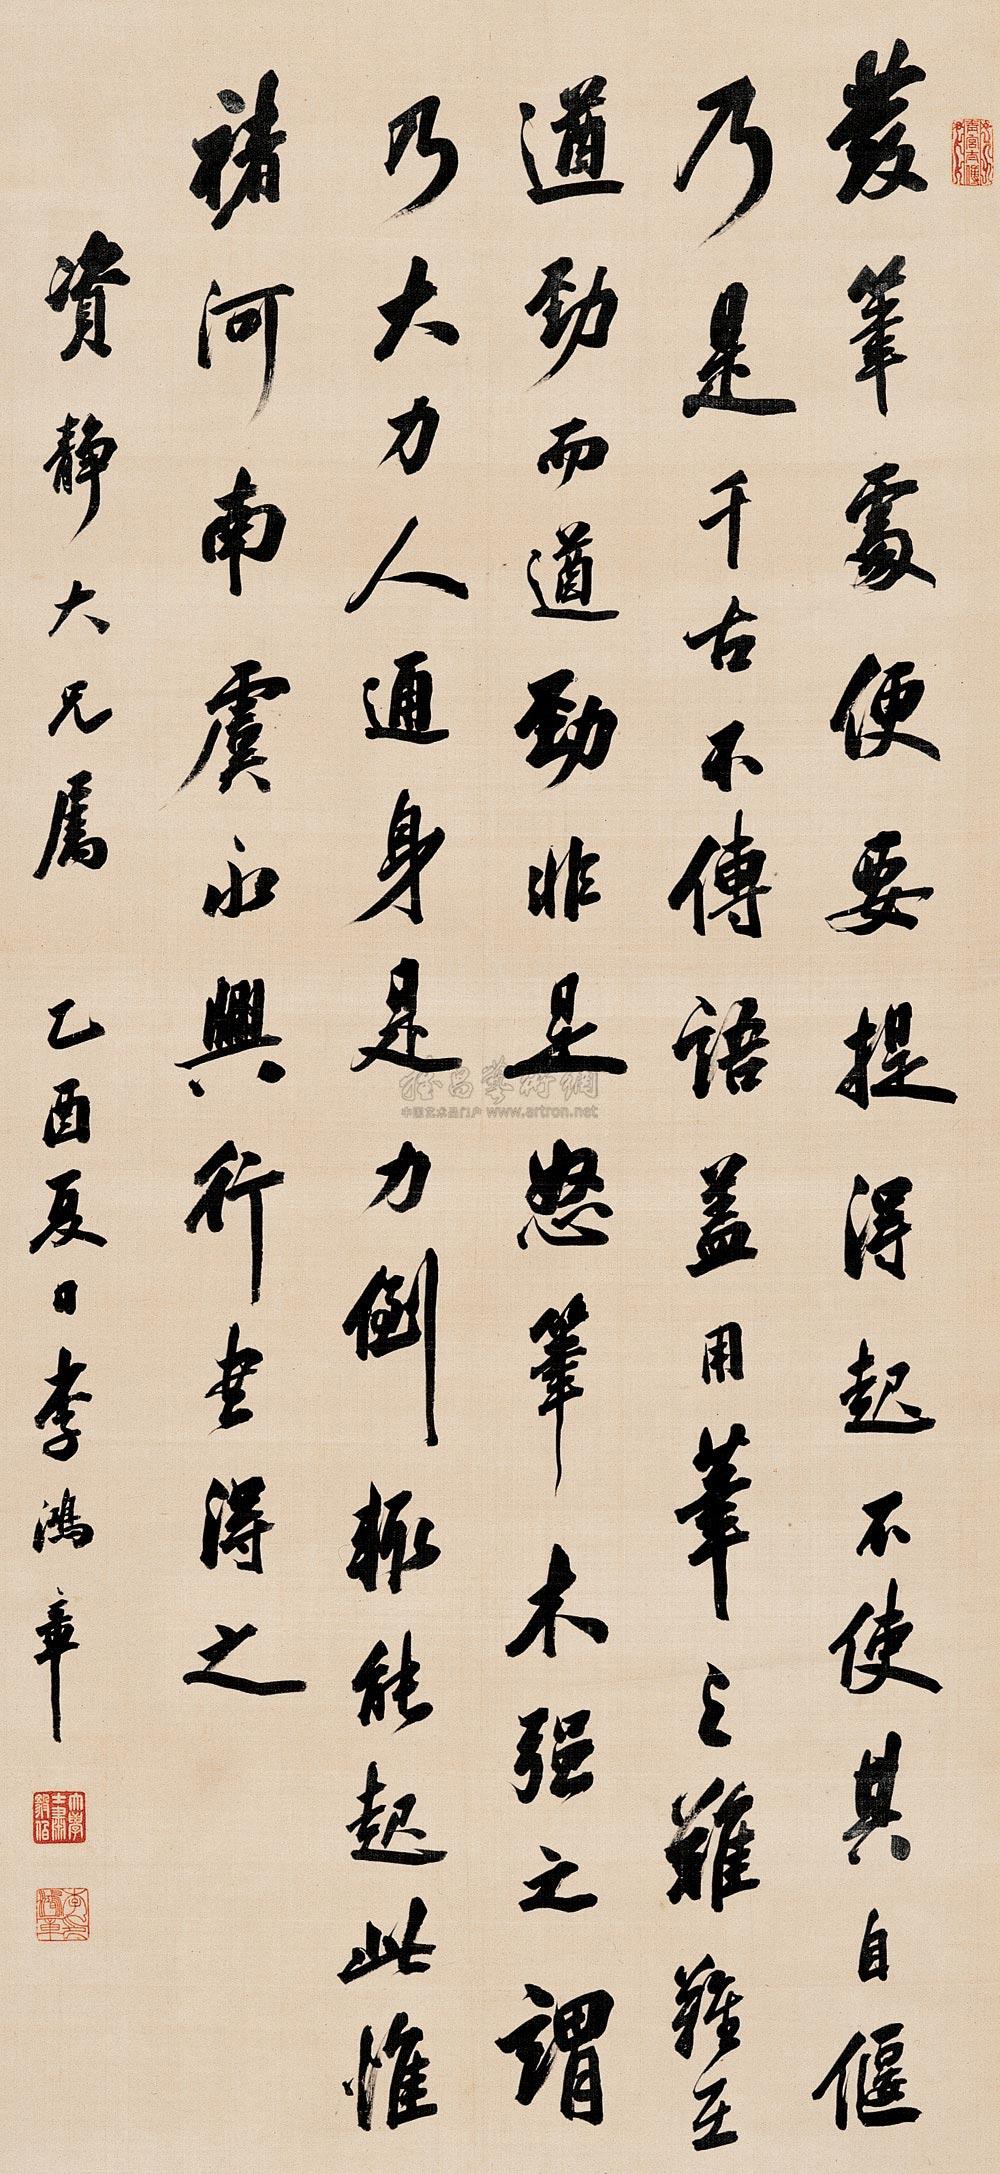 發筆處便要提得起不使其自偃
乃是千古不傳語蓋用筆之難難在
遒勁而遒勁非是怒筆木强之謂
乃大力人通身是力倒輒能起此惟
褚河南虞永興行書得之
資靜大兄屬
乙酉夏日李鴻章
大學士肅毅伯
雅昌藝術網
中国艺术品门户 www.artron.net